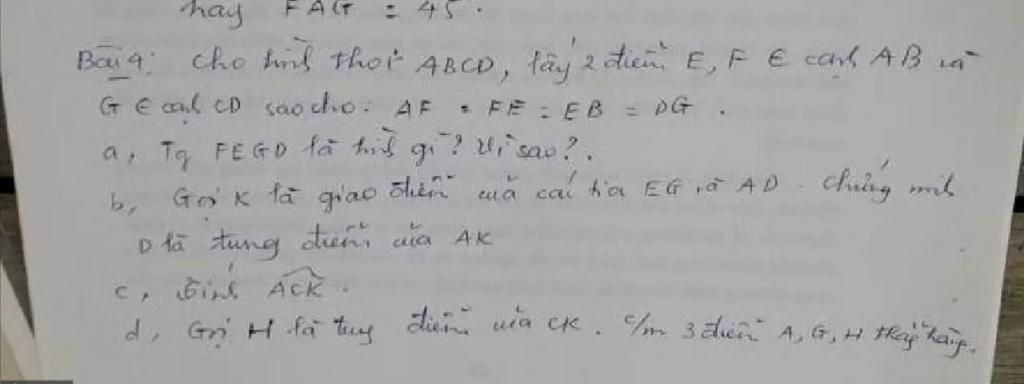 hay FAG = 45°.
Bài 4: Cho hình thoi ABCD, lấy 2 điểm E, F ∈ cạnh AB và
G ∈ cạnh CD sao cho: AF = FE = EB = DG .
a, Tg FEGD là hình gì? Vì sao?.
b, Gọi K là giao điểm của các tia EG và AD. Chứng minh
D là trung điểm của AK
c, Tính ACK .
d, Gọi H là trung điểm của CK. C/m 3 điểm A, G, H thẳng hàng.